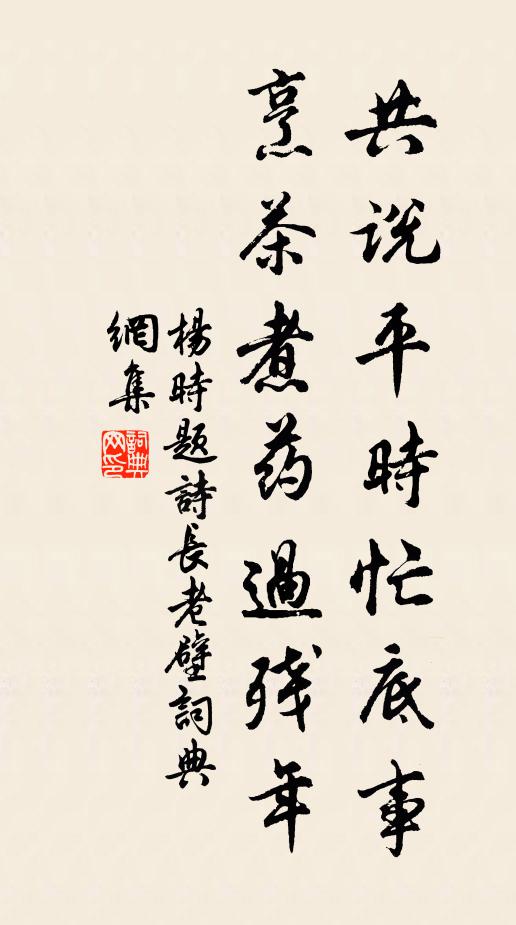 共説平時忙底事
烹茶煮药過残年
楊時題詩長老壁詞典
網集
詞典
网印